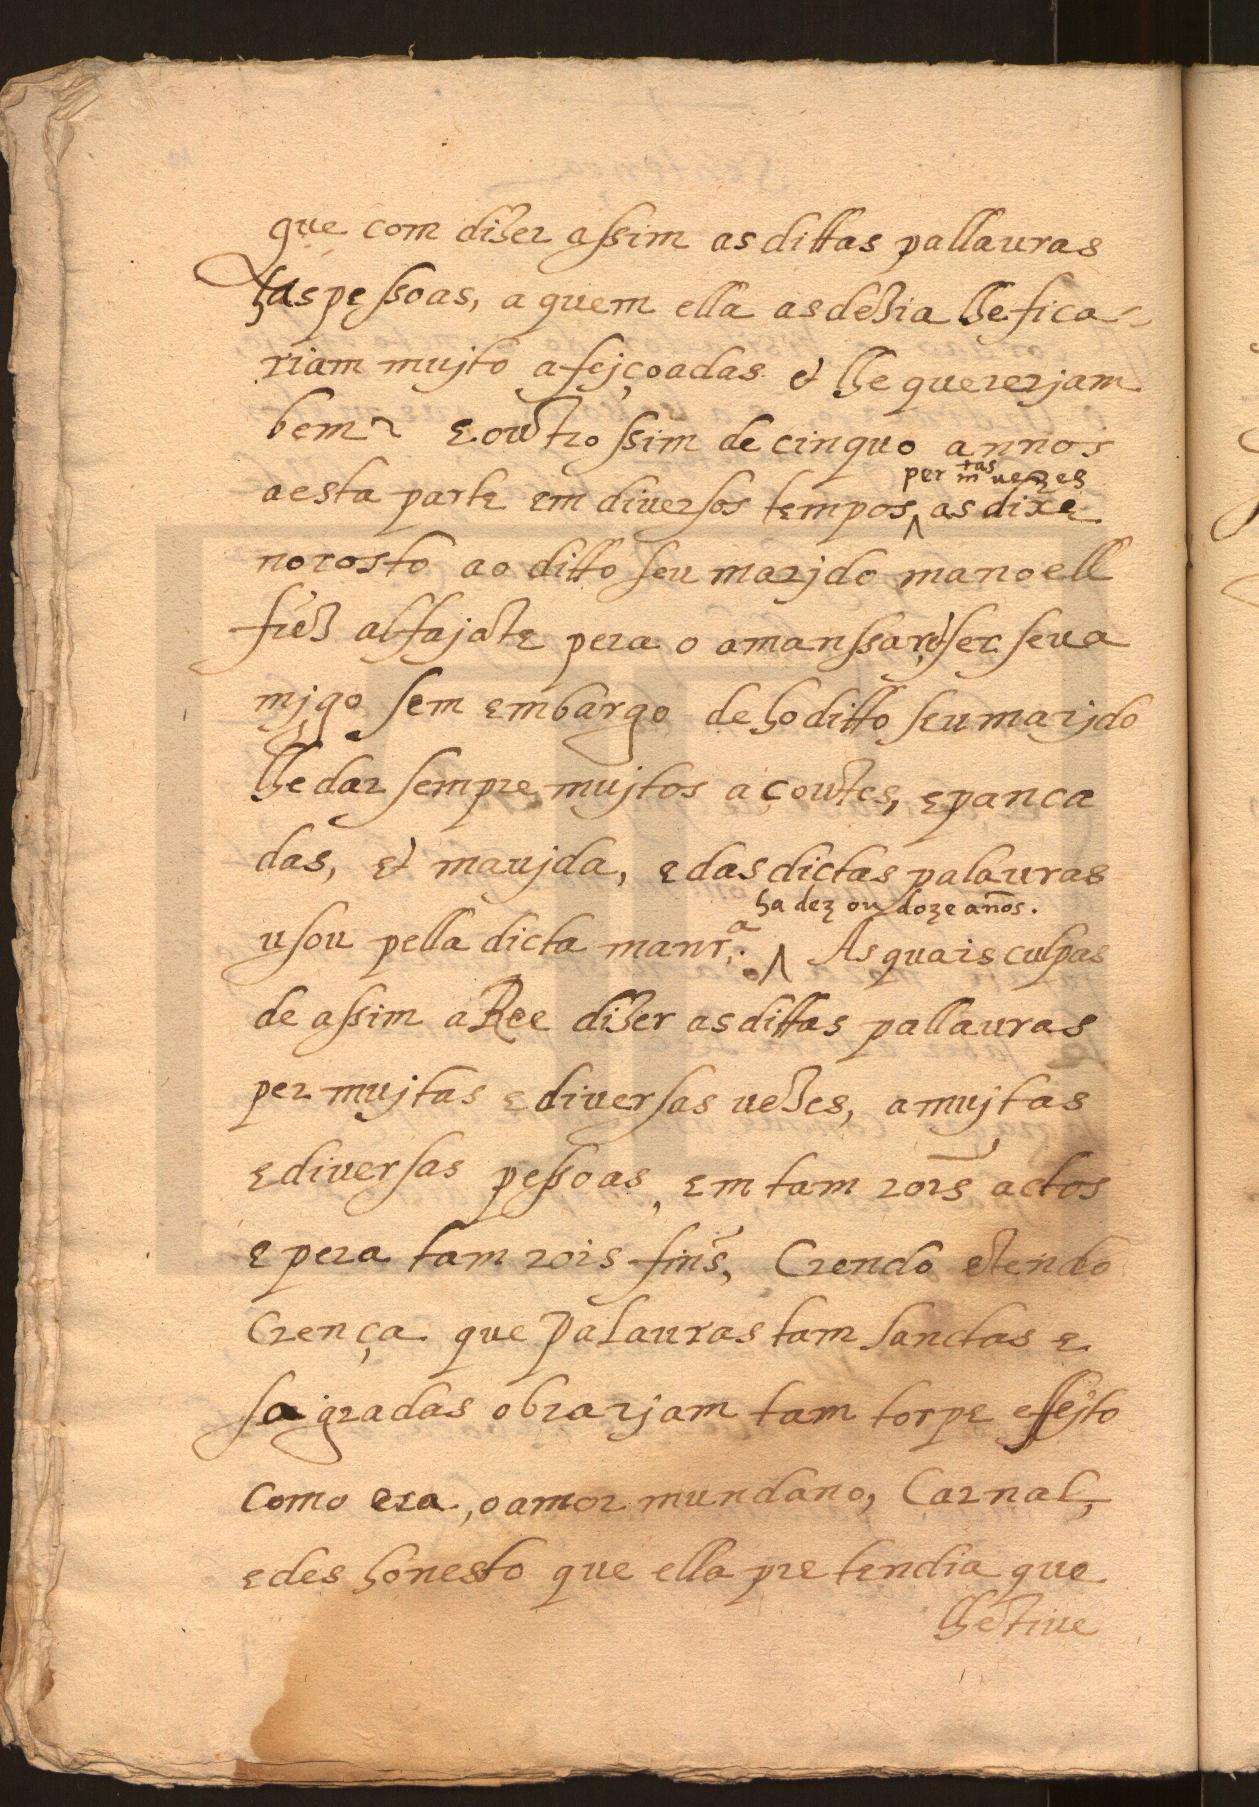 que com dizer assim as dittas pallauras
has pessoas, a quem ella as dezia lhe fica-
riam mujto afejçoadas & lhe quererjam
bem ~ E outro ssim de cinquo annos
a esta parte em diversos tempos, ʌ as dixe
per mtas vezes
no rosto ao ditto seu marjdo manoell
friz alfajate pera o amanssar, & ser seu a
mjgo sem embargo de ho ditto seu marjdo
lhe dar sempre mujtos açoutes, e panca
das, & maujda, e das dictas palauras
ha dez ou doze años.
usou pella dicta manr.ª ʌ As quais culpas
de assim a Ree dizer as dittas pallauras
per mujtas e diversas vezes, a mujtas
e diversas pessoas, em tam rois actos
e pera tam rois fins, Crendo e tendo
Crença que palauras tam sanctas e
sagradas obrarjam tam torpe effejto
Como era, o amor mundano, Carnal,
e deshonesto que ella pretendia que
lhe tive